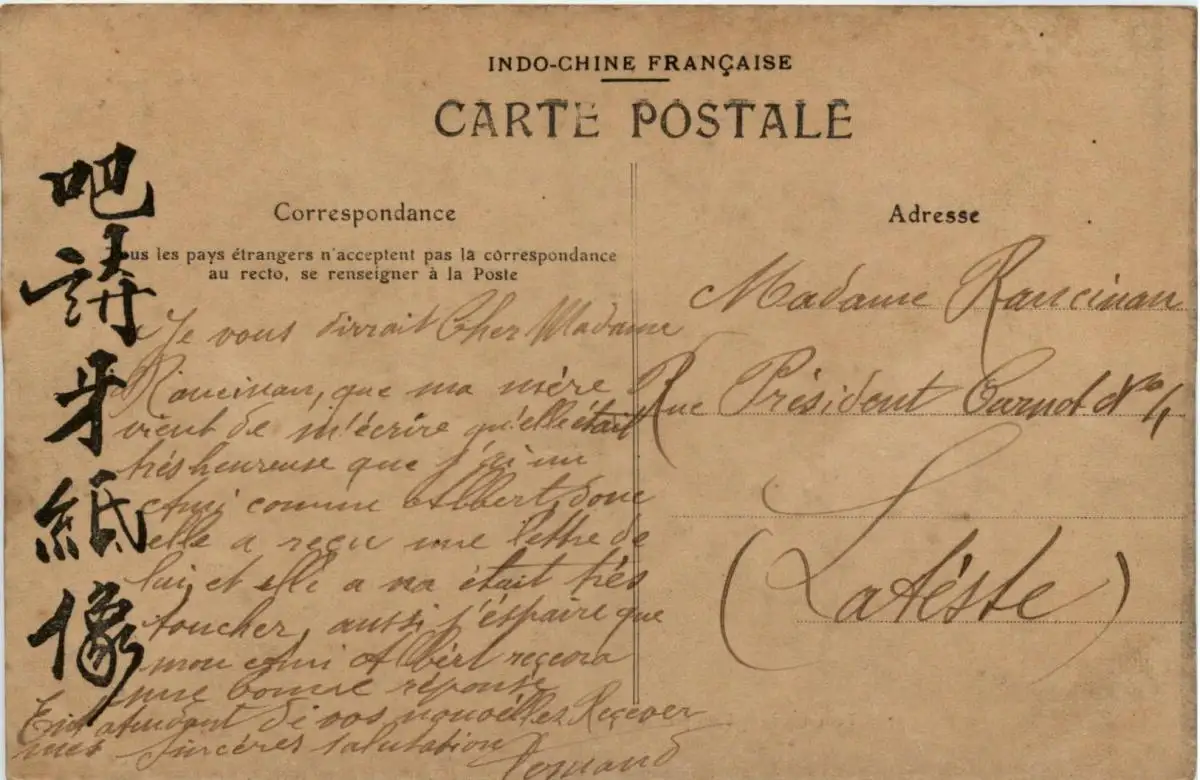 INDO-CHINE FRANÇAISE
CARTE POSTALE
吧請牙紙像
Correspondance
Tous les pays étrangers n'acceptent pas la correspondance
au recto, se renseigner à la Poste
Je vous dirrait Cher Madame
Rancinan, que ma mère
vient de m'écrire qu'elle était
très heureuse que j'ai un
Ami comme Albert, donc
elle a reçu une lettre de
lui, et elle a na était trés
toucher, aussi j'espaire que
mon Ami Albért reçecra
une bonne réponse
En atendant de vos nouvélles Reçever
mes sincéres salutation
Adresse
Madame Rancinan
Rue Président Carnot No
(Latéste)